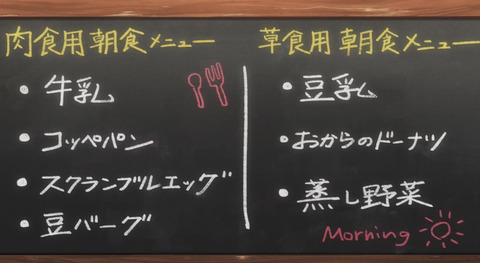 肉食用朝食メニュー
・牛乳
・コッペパン
・スクランブルエッグ
・豆バーグ
草食用朝食メニュー
・豆乳
・おからのドーナツ
・蒸し野菜
Morning